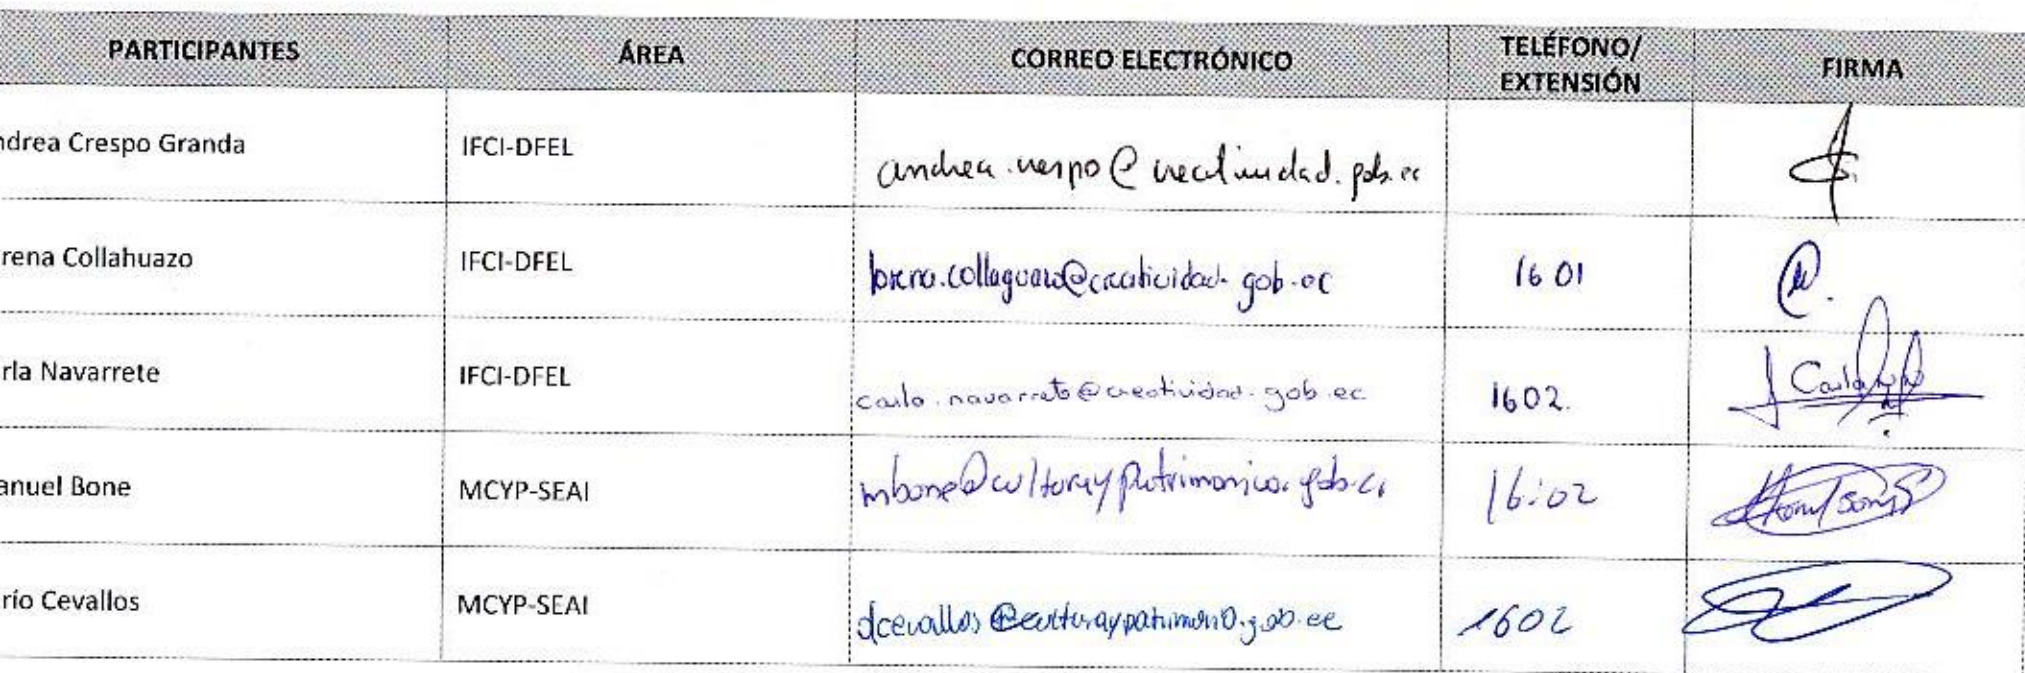 PARTICIPANTES ÁREA CORREO ELECTRÓNICO TELÉFONO/ EXTENSIÓN FIRMA
ndrea Crespo Granda IFCI-DFEL andrea.crespo@creatividad.gob.ec
rena Collahuazo IFCI-DFEL lorena.collaguazo@creatividad.gob.ec 1601
rla Navarrete IFCI-DFEL carla.navarrete@creatividad.gob.ec 1602.
anuel Bone MCYP-SEAI mbone@culturaypatrimonio.gob.ec 16:02
río Cevallos MCYP-SEAI dcevallos@culturaypatrimonio.gob.ec 1602